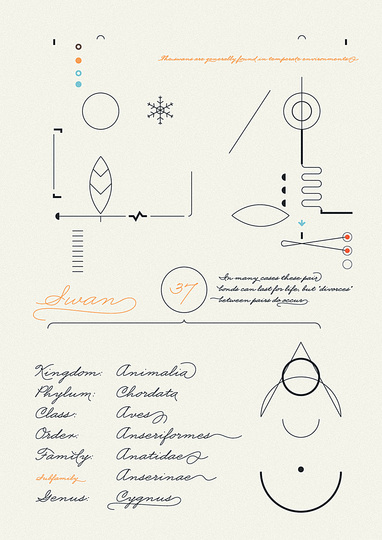 Thusians are generally found in temperate environments
Swan
37
In many cases these pair
bonds can last for life, but "divorces"
between pairs do occur
Kingdom: Animalia
Phylum: Chordata
Class: Aves
Order: Anseriformes
Family: Anatidae
Subfamily: Anserinae
Genus: Cygnus